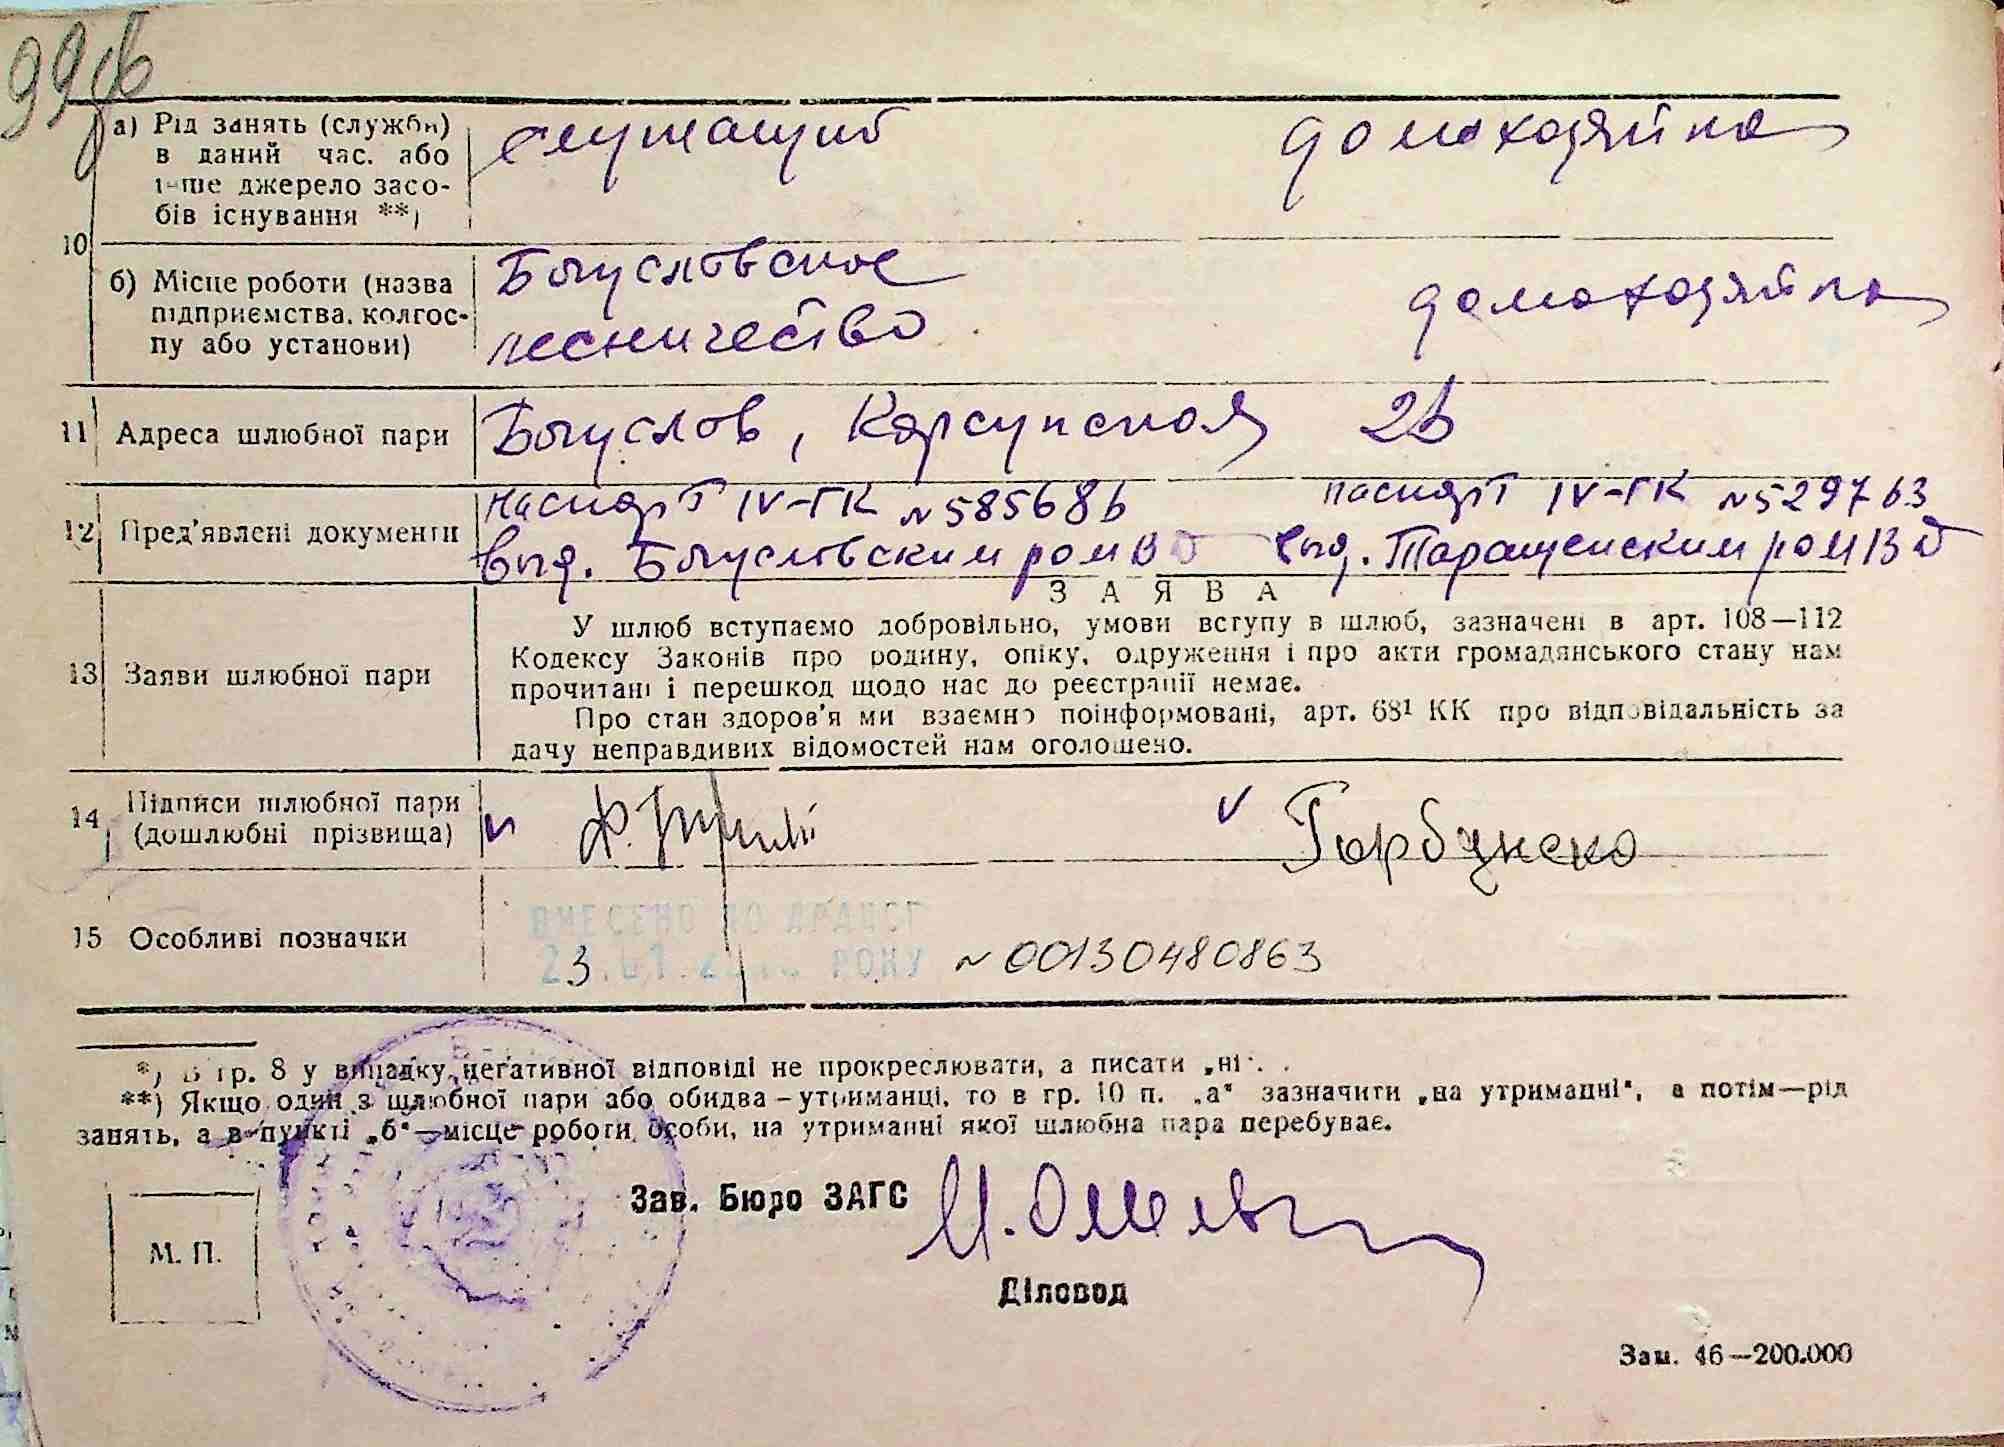 99об
а) Рід занять (служби) служащий домохозяйка
в даний час. або
інше джерело засо-
бів існування **)
10
б) Місце роботи (назва Богуславское домохозяйка
підприємства, колгос- лесничество
пу або установи)
11 Адреса шлюбної пари Богуслав, Корсунская 26
12 Пред'явлені документи паспорт IV-ГК №585686 паспорт IV-ГК №529763
выд. Богуславским ром ВД выд. Таращенским ром ВД
ЗАЯВА
У шлюб вступаємо добровільно, умови вступу в шлюб, зазначені в арт. 108—112
Кодексу Законів про родину, опіку, одруження і про акти громадянського стану нам
13 Заяви шлюбної пари прочитані і перешкод щодо нас до реєстрації немає.
Про стан здоров'я ми взаємно поінформовані, арт. 68¹ КК про відповідальність за
дачу неправдивих відомостей нам оголошено.
14 Підписи шлюбної пари Горбаненко
(дошлюбні прізвища)
ВНЕСЕНО ДО ДРАЦСГ
15 Особливі позначки 23.01. РОКУ №00130480863
*) В гр. 8 у випадку негативної відповіді не прокреслювати, а писати „ні“.
**) Якщо один з шлюбної пари або обидва – утриманці, то в гр. 10 п. „а“ зазначити „на утриманні“, а потім—рід
занять, а в пункті „б“—місце роботи особи, на утриманні якої шлюбна пара перебуває.
Зав. Бюро ЗАГС
М. П.
Діловод
Зам. 46—200.000